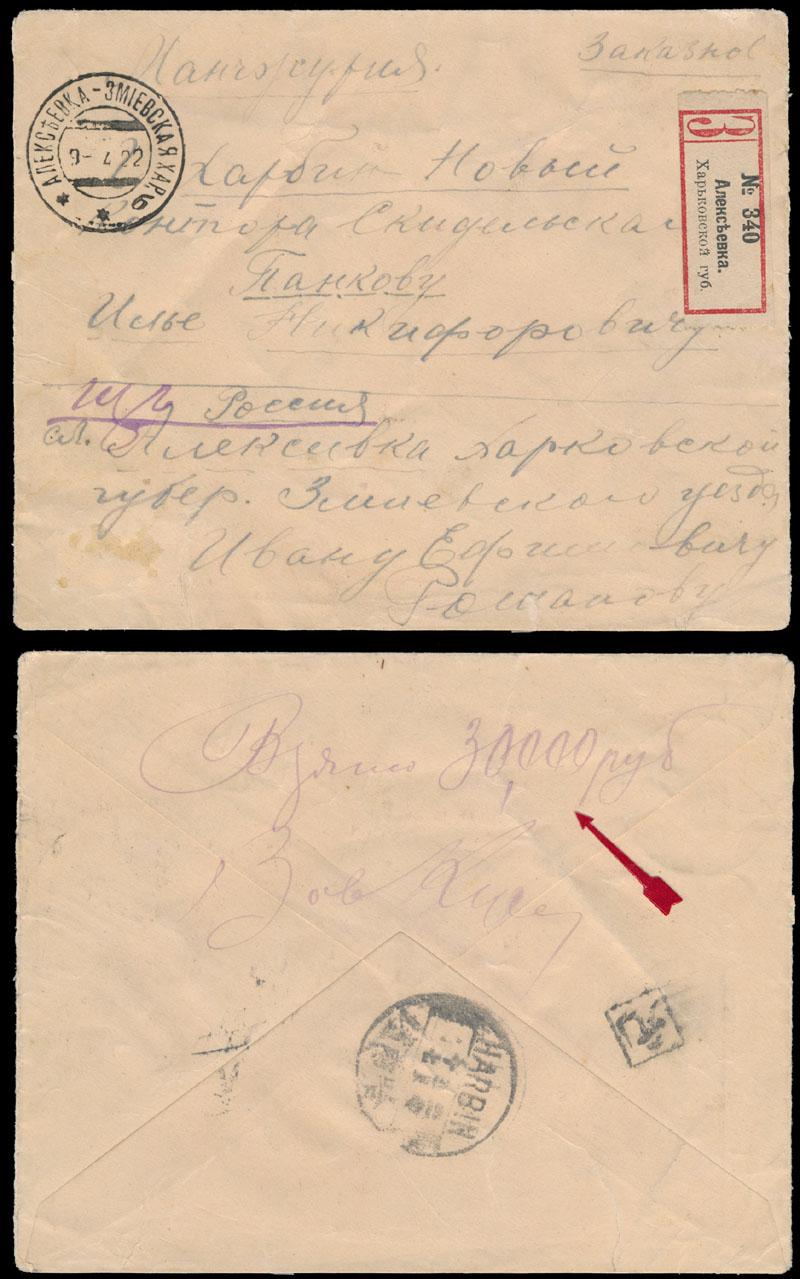 Манчжурия.
Заказное
АЛЕКСѢЕВКА-ЗМІЕВСКАЯ ХАР.
9-4 22
б
З
№ 340
Алексѣевка.
Харьковской губ.
Харбин Новый
Контора Скидельская
Панкову
Илье Никифоровичу
Россия
сл. Алексивка Харковской
губер. Змиевского уезда
Ивану Ефимовичу
Романову
Взято 30,000 руб
Зав
HARBIN